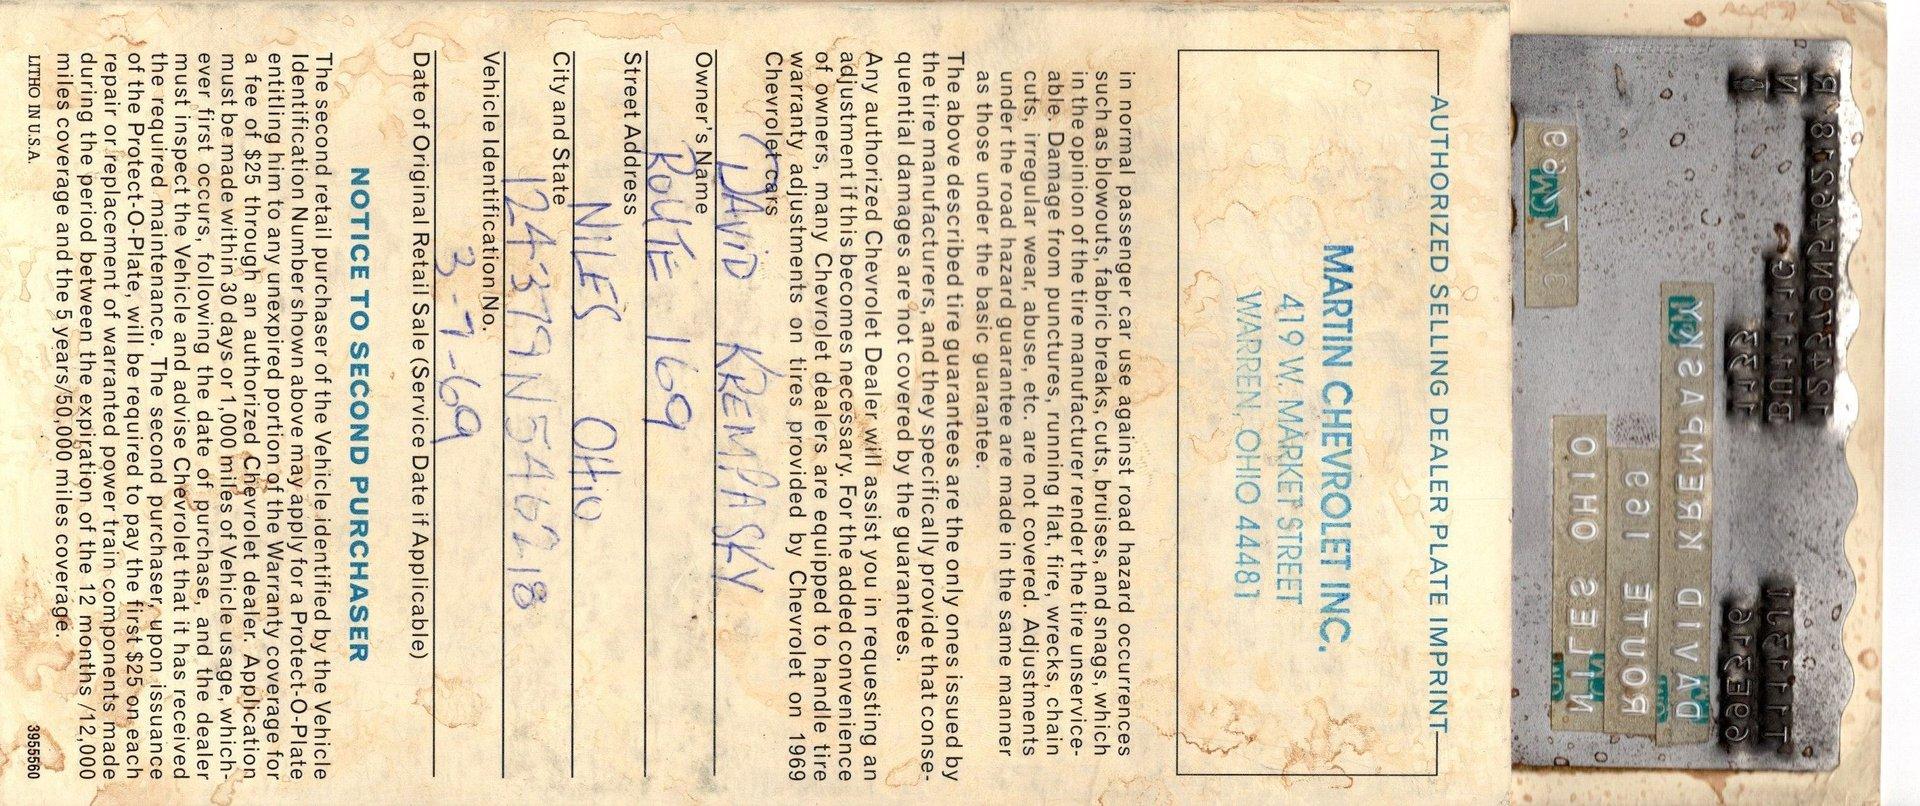 124379N546218
DAVID KREMPASKY
ROUTE 169
NILES OHIO
3/7/69
AUTHORIZED SELLING DEALER PLATE IMPRINT
MARTIN CHEVROLET INC.
419 W. MARKET STREET
WARREN, OHIO 44481
in normal passenger car use against road hazard occurrences
such as blowouts, fabric breaks, cuts, bruises, and snags, which
in the opinion of the tire manufacturer render the tire unservice-
able. Damage from punctures, running flat, fire, wrecks, chain
cuts, irregular wear, abuse, etc. are not covered. Adjustments
under the road hazard guarantee are made in the same manner
as those under the basic guarantee.
The above described tire guarantees are the only ones issued by
the tire manufacturers, and they specifically provide that conse-
quential damages are not covered by the guarantees.
Any authorized Chevrolet Dealer will assist you in requesting an
adjustment if this becomes necessary. For the added convenience
of owners, many Chevrolet dealers are equipped to handle tire
warranty adjustments on tires provided by Chevrolet on 1969
Chevrolet cars
DAViD KREMPASKY
Owner's Name
ROUTE 169
Street Address
NILES OHio
City and State
124379N546218
Vehicle Identification No.
3-7-69
Date of Original Retail Sale (Service Date if Applicable)
NOTICE TO SECOND PURCHASER
The second retail purchaser of the Vehicle identified by the Vehicle
Identification Number shown above may apply for a Protect-O-Plate
entitling him to any unexpired portion of the Warranty coverage for
a fee of $25 through an authorized Chevrolet dealer. Application
must be made within 30 days or 1,000 miles of Vehicle usage, which-
ever first occurs, following the date of purchase, and the dealer
must inspect the Vehicle and advise Chevrolet that it has received
the required maintenance. The second purchaser, upon issuance
of the Protect-O-Plate, will be required to pay the first $25 on each
repair or replacement of warranted power train components made
during the period between the expiration of the 12 months/12,000
miles coverage and the 5 years/50,000 miles coverage.
LITHO IN U.S.A.
3955560